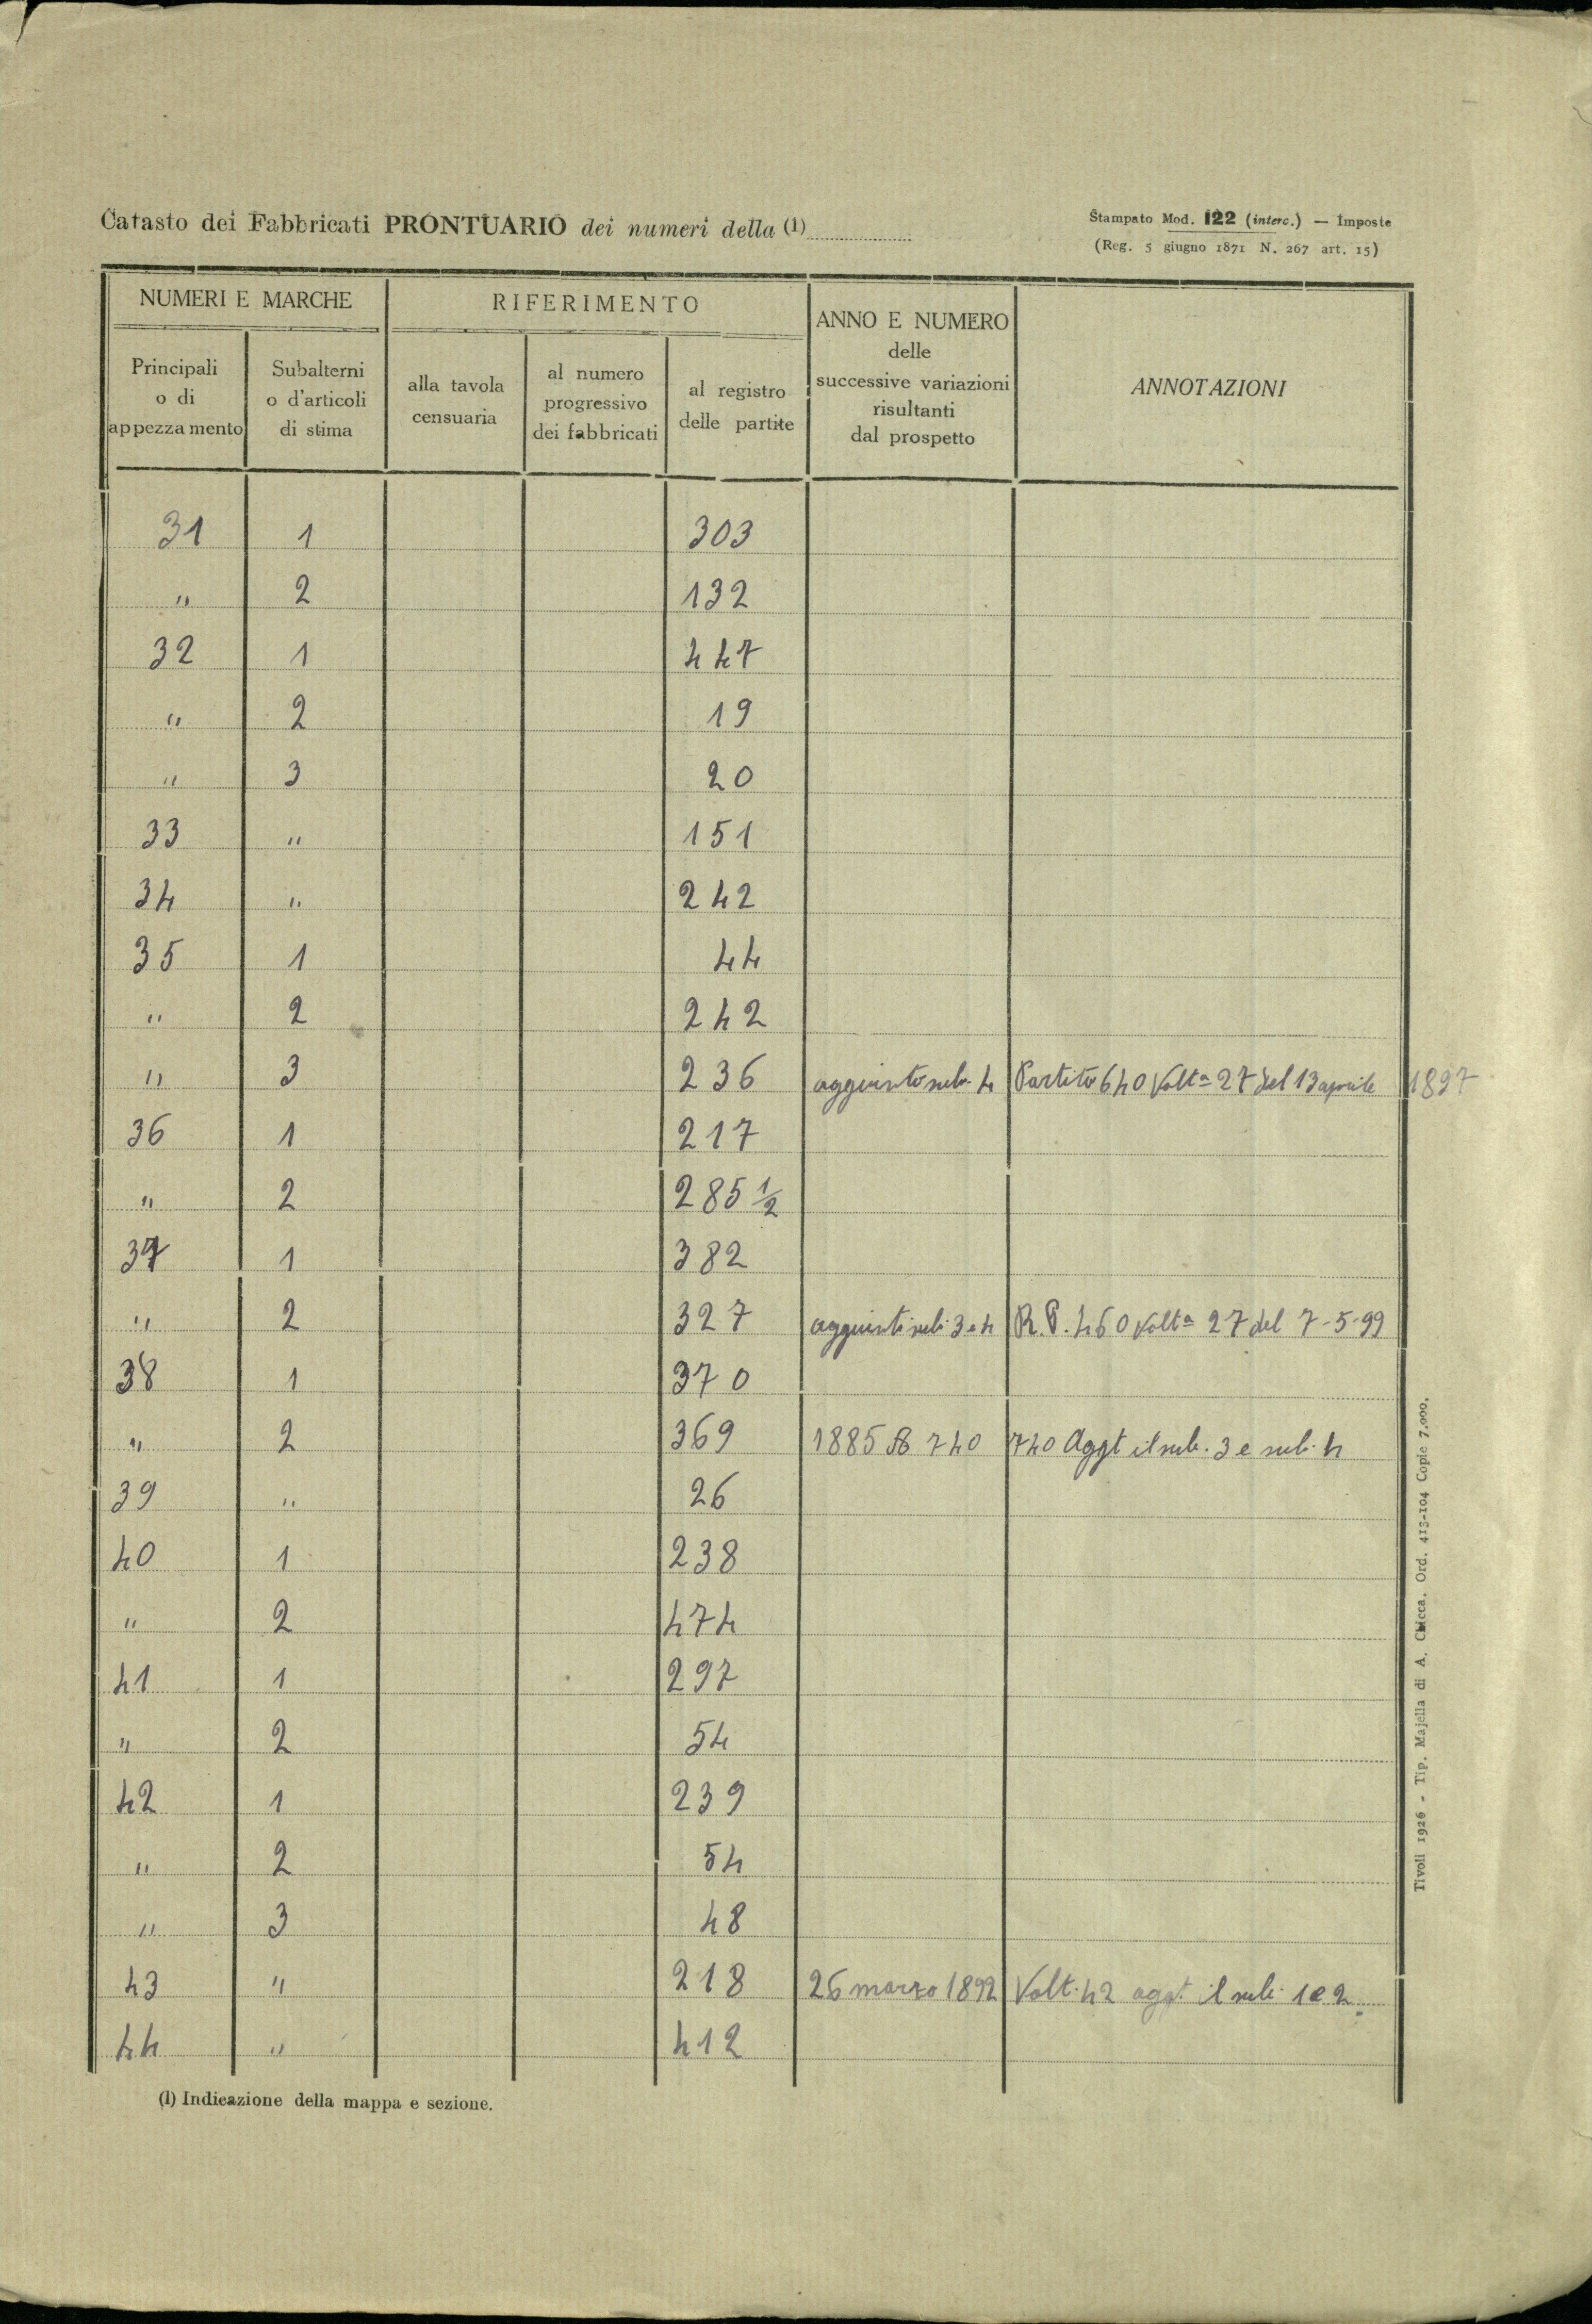 Catasto dei Fabbricati PRONTUARIO dei numeri della (1)
Stampato Mod. 122 (interc.) — Imposte
(Reg. 5 giugno 1871 N. 267 art. 15)
NUMERI E MARCHE
RIFERIMENTO
ANNO E NUMERO
delle
successive variazioni
risultanti
dal prospetto
ANNOTAZIONI
Principali
o di
appezzamento
Subalterni
o d'articoli
di stima
alla tavola
censuaria
al numero
progressivo
dei fabbricati
al registro
delle partite
31 1 303
" 2 132
32 1 447
" 2 19
" 3 20
33 " 151
34 " 242
35 1 44
" 2 242
" 3 236 aggiunto sub. 4 Partita 640 Volta 27 del 13 aprile 1897
36 1 217
" 2 285 1/2
37 1 382
" 2 327 aggiunti sub. 3 e 4 R. P. 460 Volta 27 del 7-5-99
38 1 370
" 2 369 1885 740 740 Aggt il sub. 3 e sub. 4
39 " 26
40 1 238
" 2 474
41 1 297
" 2 54
42 1 239
" 2 54
" 3 48
43 " 218 26 marzo 1892 Volt. 42 aggt. il sub. 1 e 2.
44 " 412
(1) Indicazione della mappa e sezione.
Tivoli 1926 - Tip. Majella di A. Chicca. Ord. 413-104 Copie 7.000.